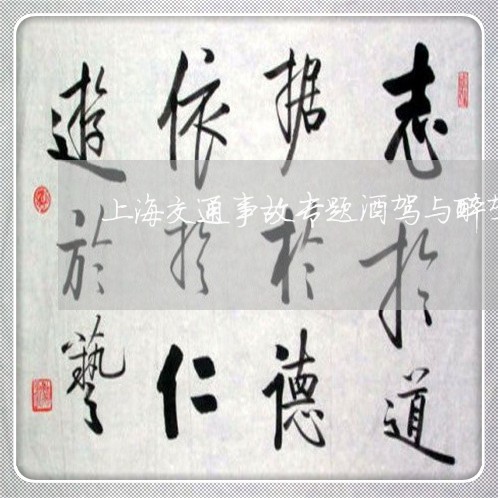 志於道
据於德
依於仁
遊於藝
上海交通事故专题酒驾与醉